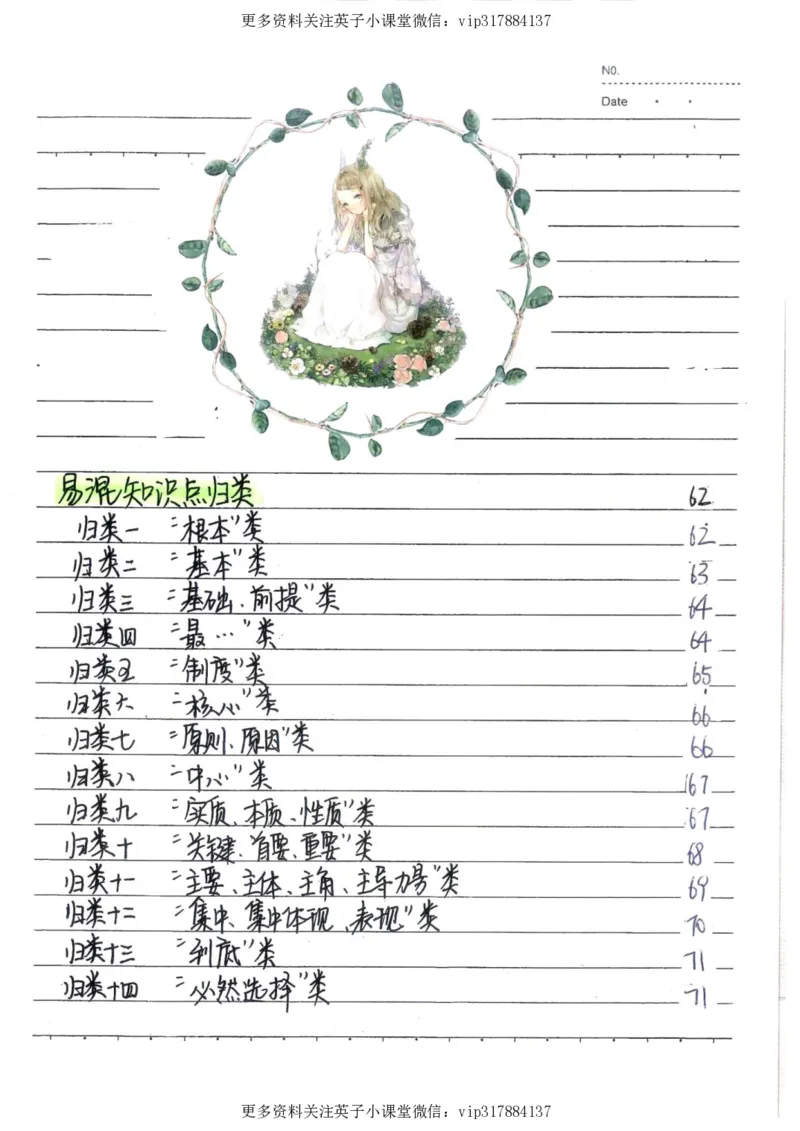 更多资料关注英子小课堂微信：vip317884137
NO.
Date
易混知识点归类 62
归类一 "根本"类 62
归类二 "基本"类 63
归类三 "基础、前提"类 64
归类四 "最…"类 64
归类五 "制度"类 65
归类六 "核心"类 66
归类七 "原则、原因"类 66
归类八 "中心"类 67
归类九 "实质、本质、性质"类 67
归类十 "关键、首要、重要"类 68
归类十一 "主要、主体、主角、主导力易"类 69
归类十二 "集中、集中体现、表现"类 70
归类十三 "到底"类 71
归类十四 "必然选择"类 71
更多资料关注英子小课堂微信：vip317884137